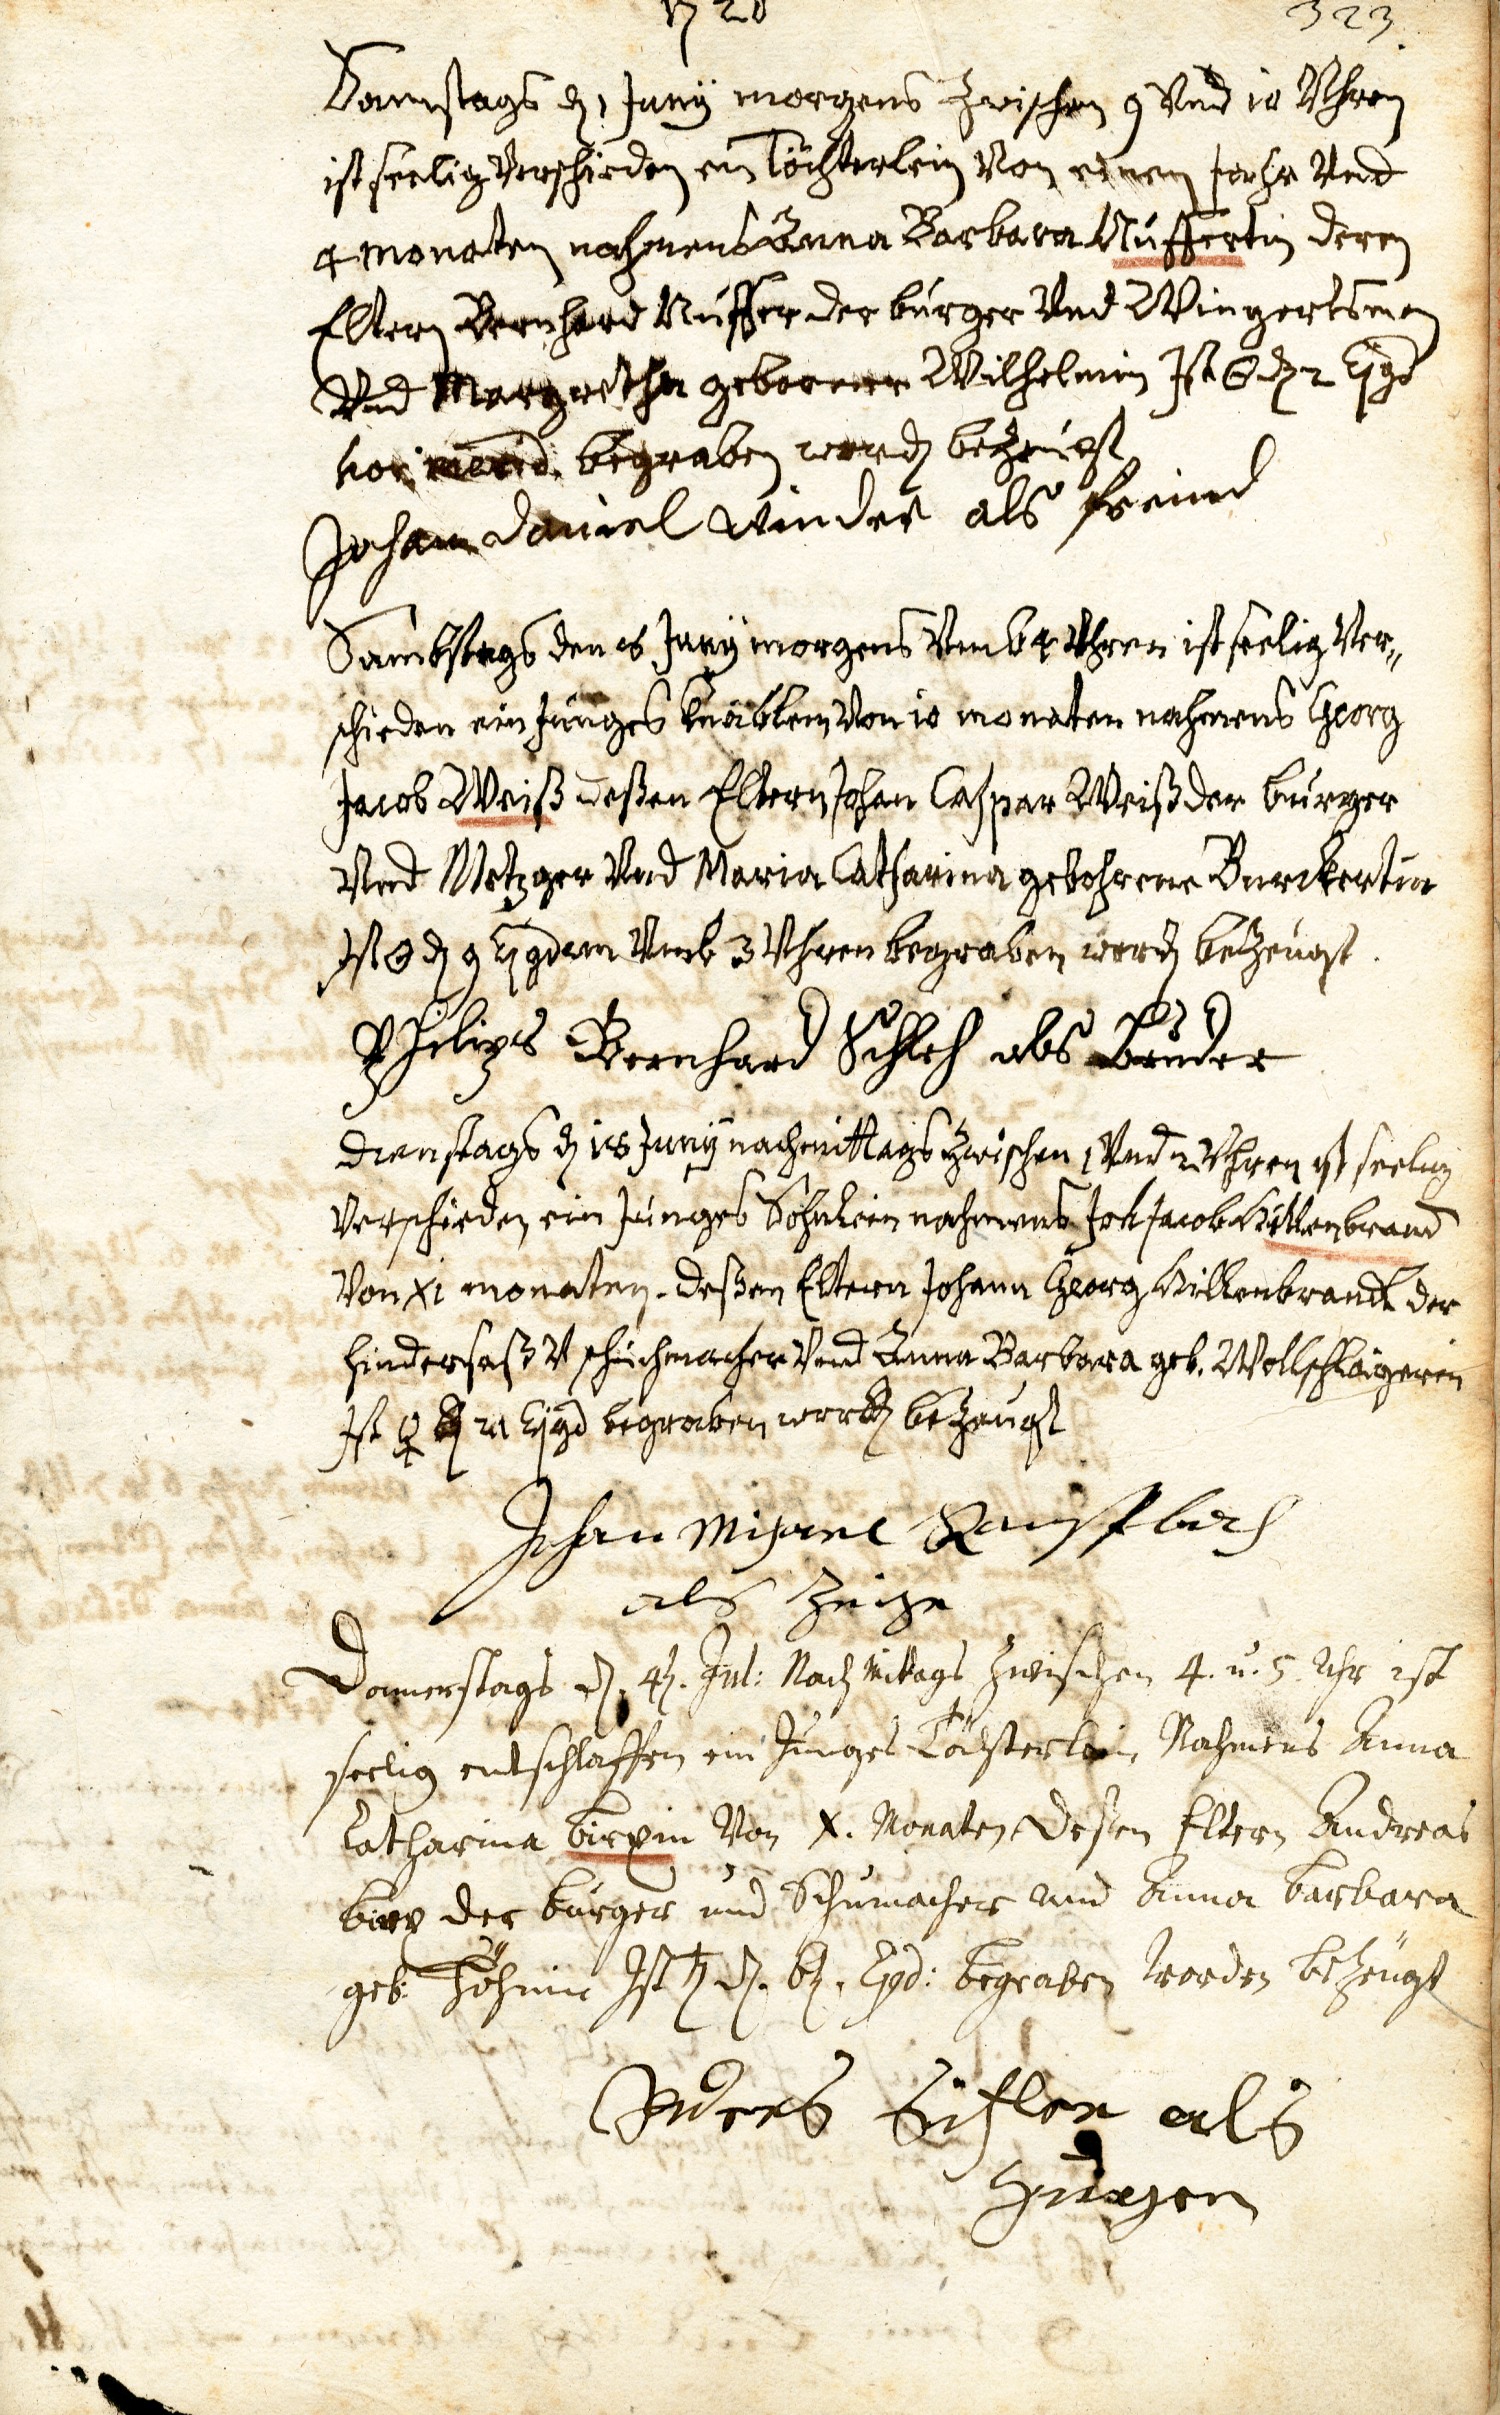 1720
323.
Samstags d 1 Junÿ morgens zwischen 9 Vnd 10 Vhren
ist seelig Verschieden ein Töchterlein Von einem Jahr Vnd
4 monaten nahmens Anna Barbara Nüffertin deren
Eltern Bernhard Nüffer der burger Vnd Wingertsman
Vnd Margretha geborene Wilhelmin Ist ☉ d 2 Ejgd
begraben word bezeugt
Johann daniel winder als freind
Sambstags den 8 Junÿ morgens Vmb 4 Vhren ist seelig Ver„
schieden ein junges Knäblein Von 10 monaten nahmens Georg
Jacob Weiß deßen Eltern Johan Caspar Weiß der burger
Vnd Metzger Vnd Maria Catharina gebohrene Burckertin
Ist ☉ d 9 Ejgdem Vmb 3 Vhren begraben word bezeugt.
Philips Bernhard Schlch als bruder
dienstags d 18 Junÿ nachmittags zwischen 1 Vnd 2 Vhren ist seelig
Verschieden ein junges Söhnlein nahmens Joh Jacob Hillenbrand
Von XI monaten. deßen Eltern Johann Georg Hillenbrandt der
hindersaß V schuchmacher Vnd Anna Barbara geb. Wollschlägerin
Ist ♀ d 21 Ejgd begraben word bezeugt
Johan Michael
als zeige
Donnerstags d. 4t. Jul: Nachmittags zwischen 4. u. 5. Uhr ist
seelig entschlaffen ein junges Töchterlein, Nahmens Anna
Catharina birxin Von X. Monaten, deßen Eltern Andreas
birx der burger und Schumacher und Anna barbara
geb. Ist ♄ d. 6t. Ejgd: begraben worden bezeugt
als